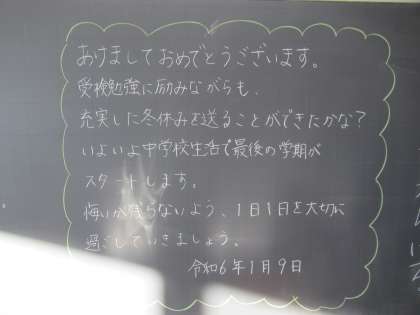 あけましておめでとうございます。
受検勉強に励みながらも、
充実した冬休みを送ることができたかな？
いよいよ中学校生活で最後の学期が
スタートします。
悔いが残らないよう、1日1日を大切に
過ごしていきましょう。
令和6年1月9日